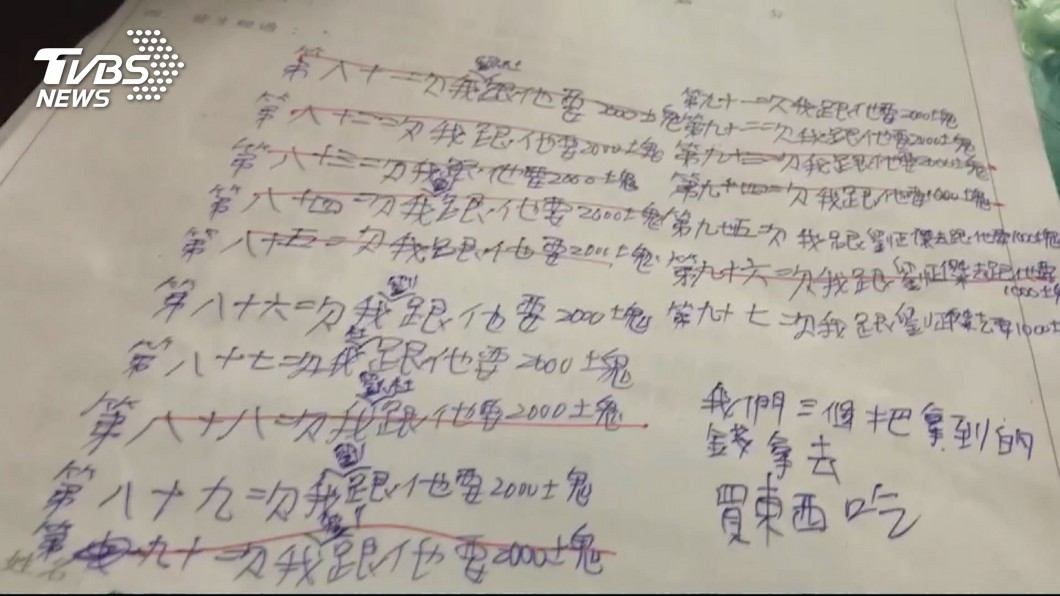 TVBS
NEWS
發生經過：
第八十一次我跟他要2000塊
第八十二次我跟他要2000塊
第八十三次我跟他要2000塊
第八十四次我跟他要2000塊
第八十五次我跟他要2000塊
劉
第八十六次我跟他要2000塊
第八十七次我跟他要2000塊
第八十八次我跟他要2000塊
第八十九次我跟他要2000塊
第九十次我跟他要2000塊
姓名
第九十一次我跟他要2000塊
第九十二次我跟他要2000塊
第九十三次我跟他要2000塊
第九十四次我跟他要1000塊
第九十五次我跟劉傑去跟他要1000塊
第九十六次我跟劉傑去跟他要
1000塊
第九十七次我跟劉傑去要1000
我們三個把拿到的
錢拿去
買東西吃